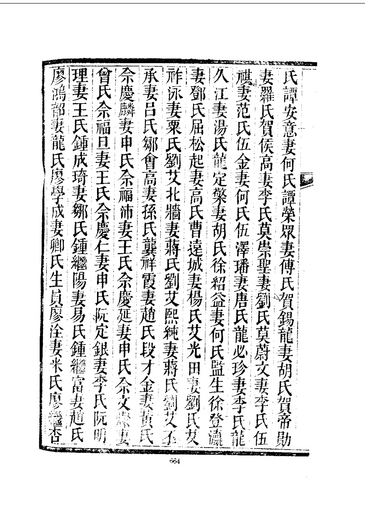 氏譚安意妻何氏譚榮眾妻傅氏賀錫龍妻胡氏賀帝勛
妻羅氏賀侯高妻李氏莫崇聖妻劉氏莫蔚文妻李氏伍
祺妻范氏伍金妻何氏伍澤璠妻唐氏龍必珍妻李氏龍
久江妻湯氏龍定榮妻胡氏徐紹益妻何氏監生徐登瀛
妻鄧氏屈松起妻高氏曹達城妻楊氏艾光田妻劉氏艾
祚泳妻粟氏劉艾北牆妻蔣氏劉艾熙純妻蔣氏劉艾
承妻呂氏鄒會高妻孫氏龔祥霞妻趙氏段才金妻黃氏
佘慶麟妻申氏佘福沛妻王氏佘慶延妻申氏佘文妻
曾氏佘福旦妻王氏佘慶仁妻申氏阮定銀妻李氏阮明
理妻王氏鍾成琦妻鄒氏鍾繼陽妻易氏鍾繼富妻趙氏
廖鴻韶妻龍氏廖學成妻卿氏生員廖淦妻米氏廖繼杏
664